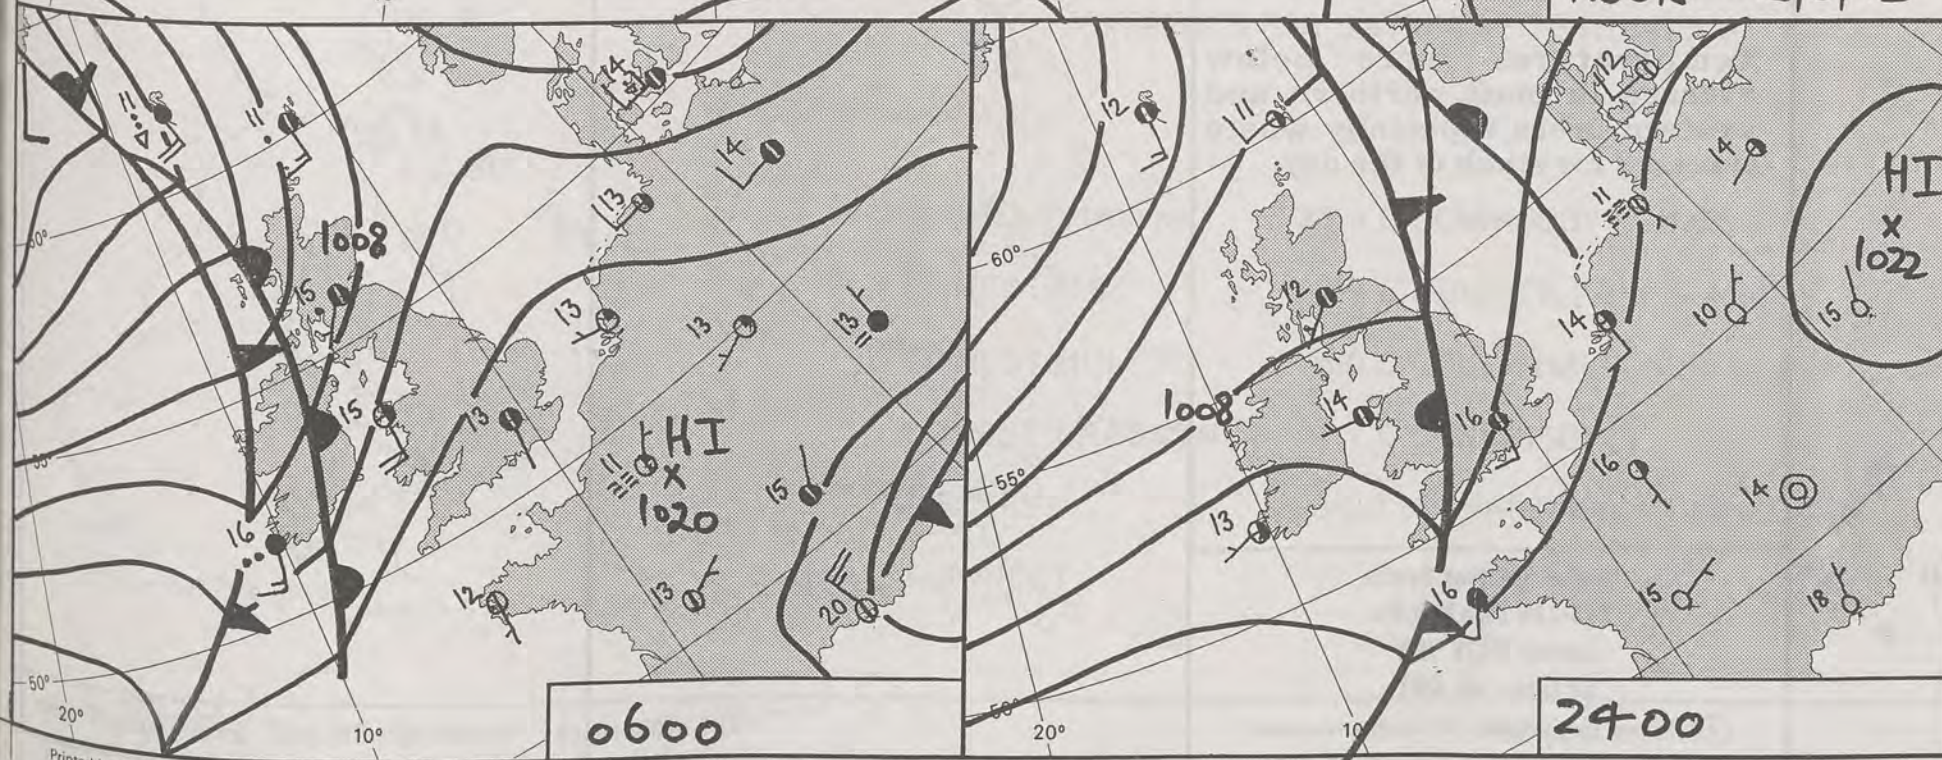 14
11
11
14
13
60°
1008
15
13
13
13
15
13
HI
11
x
55°
1020
15
16
12
13
20
50°
20°
10°
0600
12
11
12
14
11
HI
x
1022
60°
12
14
10
15
1008
14
16
16
14
55°
13
16
15
18
50°
20°
10
2400